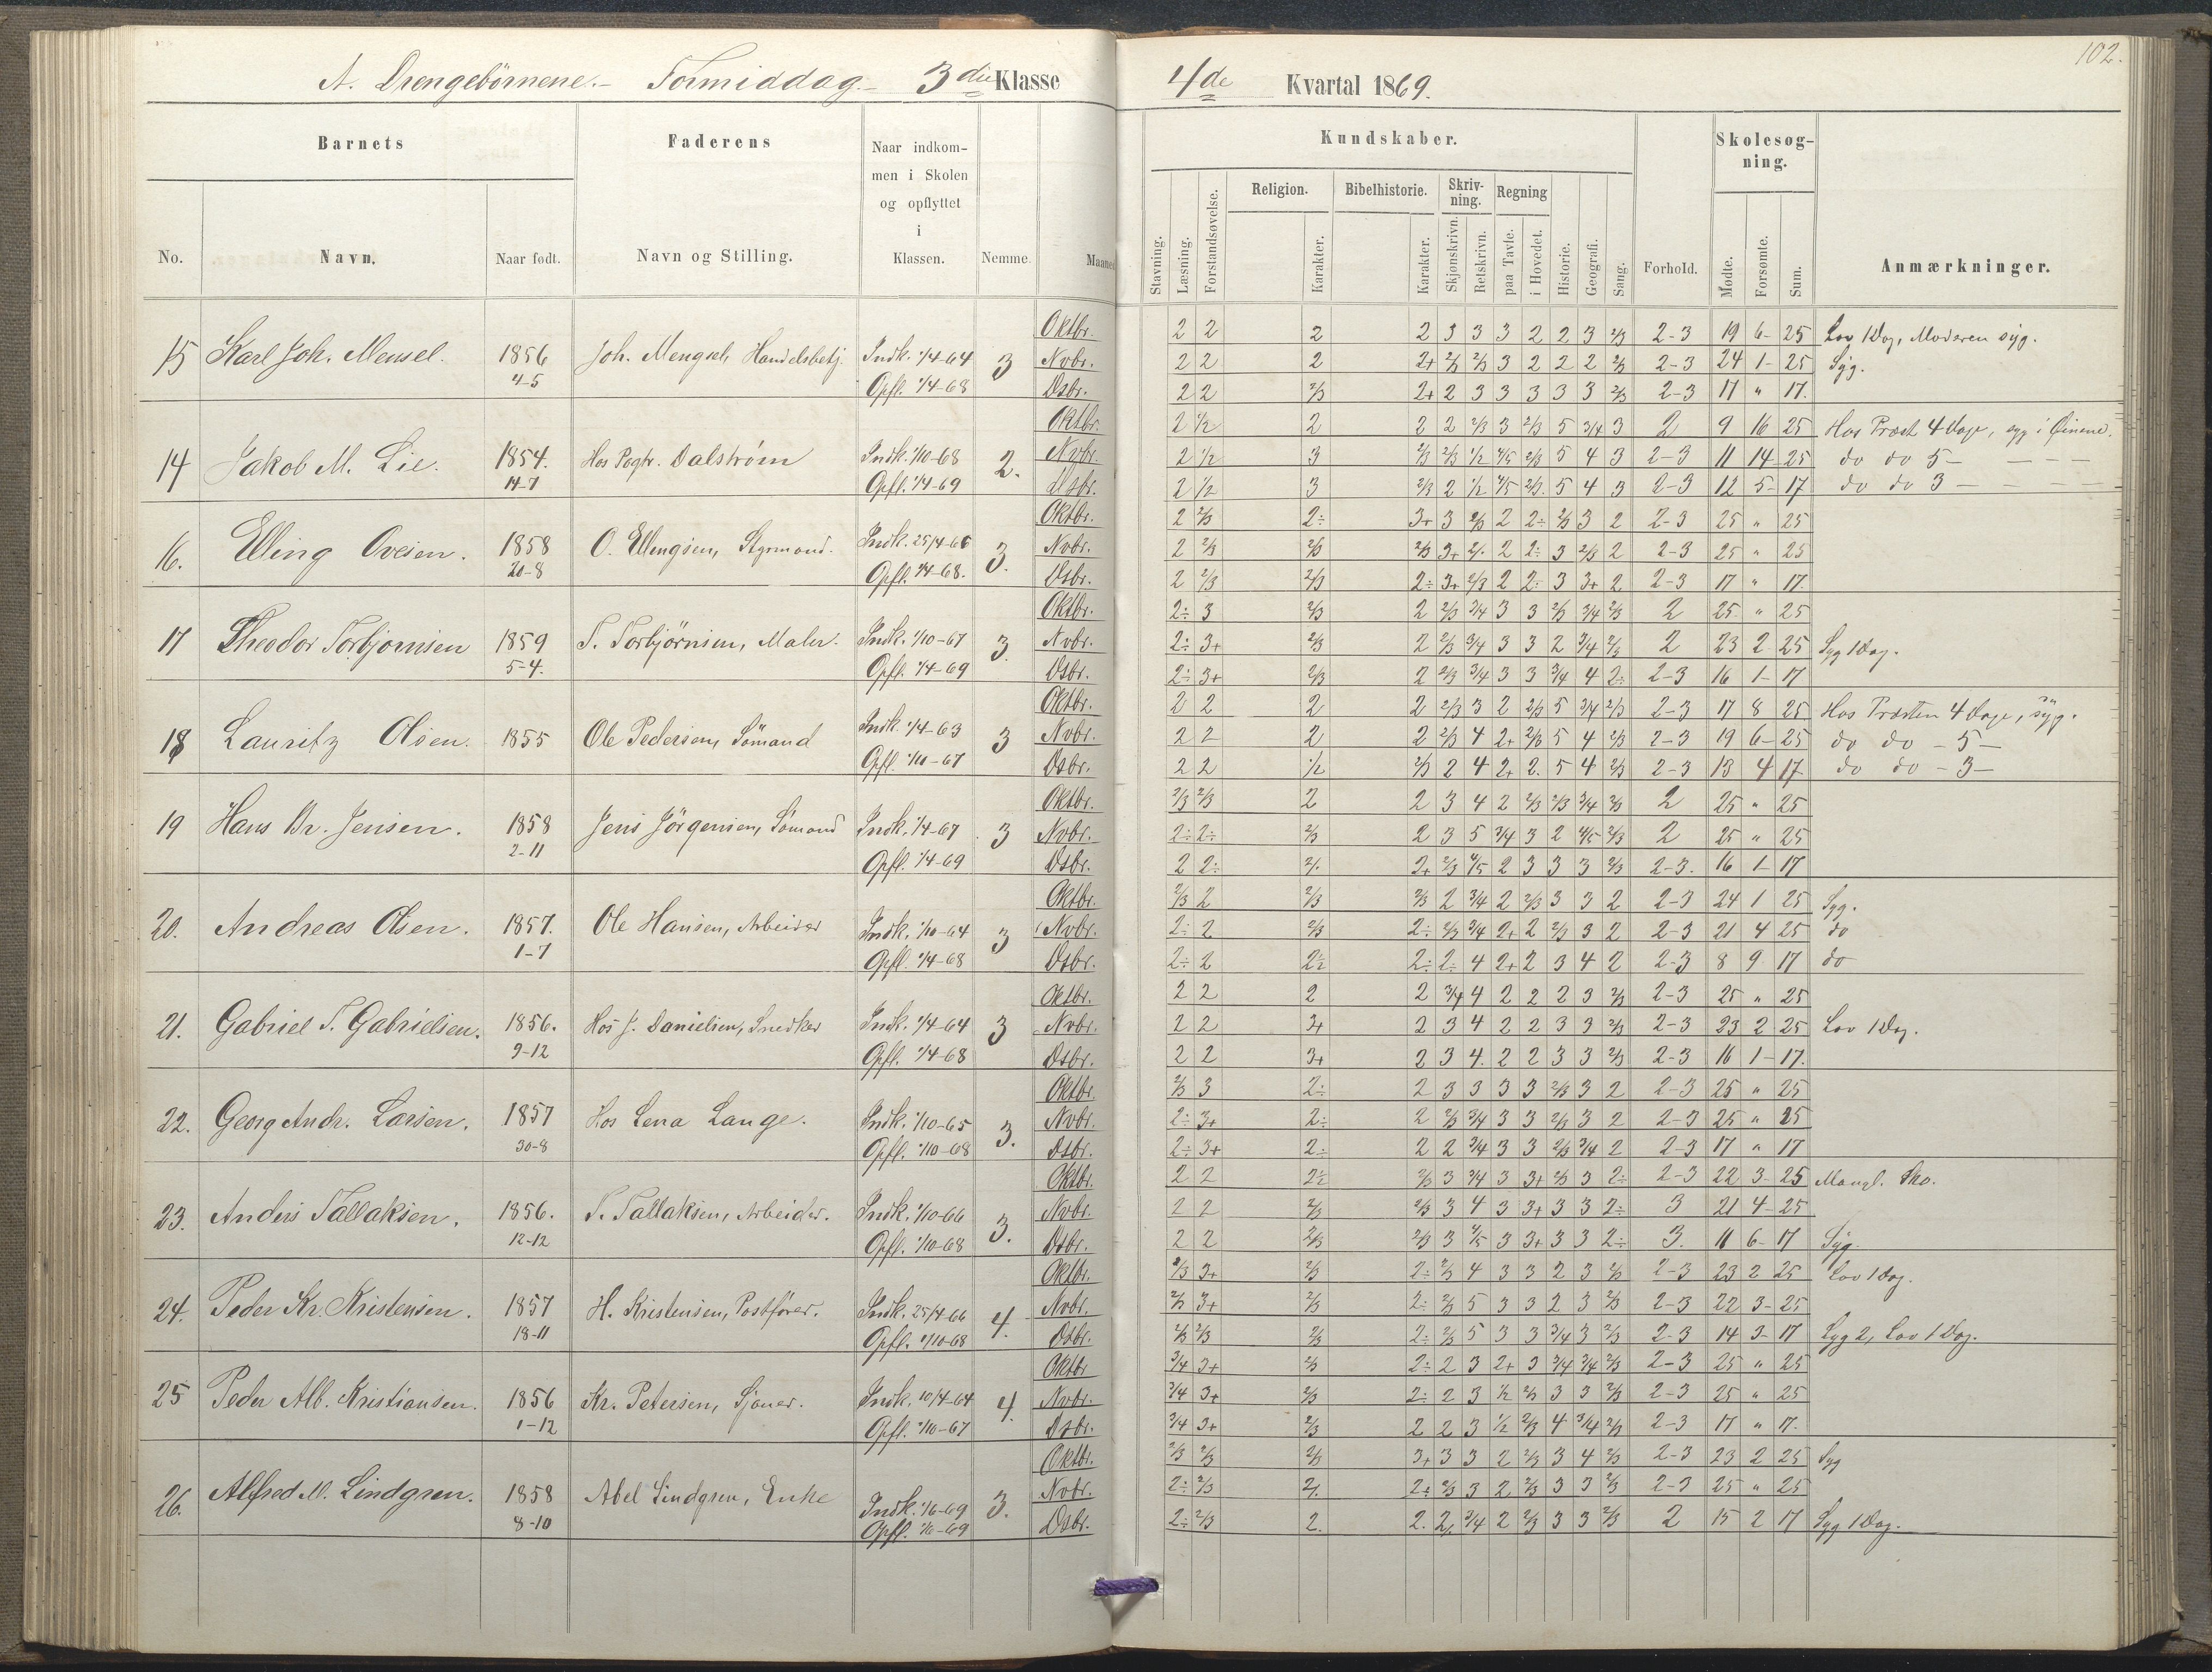 102.
A. Drengebörnene.- Formiddag- 3die Klasse 4de Kvartal 1869.
Barnets Faderens Naar indkommen i Skolen og opflyttet i Klassen. Kundskaber. Skolesøgning.
No. Navn. Naar født. Navn og Stilling. Nemme. Stavning. Læsning. Forstandsøvelse. Religion. Karakter. Bibelhistorie. Karakter. Skrivning. Skjønskrivn. Retskrivn. Regning paa Tavle. i Hovedet. Historie. Geografi. Sang. Forhold. Mødte. Forsømte. Sum. Anmærkninger.
Oktbr. 2 2 2 2 3 3 3 2 2 3 2/3 2-3 19 6- 25 Lov 1 Dag, Moderen syg.
15 Karl Joh. Mensel. 1856 4-5 Joh. Mengsel, Handelsbetj. Indk. 1/4-64 Opfl. 1/4-68 3 Nvbr. 2 2 2 2+ 2/3 2/3 3 2 2 2 2/3 2-3 24 1- 25 Syg.
Dsbr. 2 2 2/3 2+ 2 3 3 3 3 3 2/3 2-3 17 " 17.
Oktbr. 2 1/2 2 2 2 2/3 3 2/3 5 3/4 3 2 9 16 25 Hos Præst 4 Dage, syg i Øinene.
14 Jakob M. Lie. 1854. 14-7 Hos Pogtr. Dalstrøm Indk. 1/10-68 Opfl. 1/4-69 2. Nvbr. 2 1/2 3 2/3 2/3 1/2 4/5 2/3 5 4 3 2-3 11 14- 25 do do 5 -
Dsbr. 2 1/2 3 2/3 2 1/2 4/5 2/3 5 4 3 2-3 12 5- 17 do do 3 -
Oktbr. 2 2/3 2÷ 3+ 3 2/3 2 2÷ 2/3 3 2 2-3 25 " 25
16. Elling Ovesen. 1858 20-8 O. Ellingsen, Styrmand. Indk. 25/4-66 Opfl. 1/4-68. 3. Nvbr. 2 2/3 2/3 2/3 3+ 2/. 2 2÷ 3 2/3 2 2-3 25 " 25
Dsbr. 2 2/3 2/3 2÷ 3+ 2/3 2 2÷ 3 3+ 2 2-3 17 " 17.
Oktbr. 2÷ 3 2/3 2 2/3 3/4 3 3 2/3 3/4 2/3 2 25 " 25
17 Theodor Torbjörnsen 1859 5-4. T. Torbjörnsen, Maler. Indk. 1/10-67 Opfl. 1/4-69 3. Nvbr. 2÷ 3+ 2/3 2 2/3 3/4 3 3 2 3/4 2/3 2 23 2 25 Syg 1 Dag.
Dsbr. 2÷ 3+ 2/3 2 2/3 3/4 3 3 3/4 4 2÷ 2-3 16 1- 17
Oktbr. 2 2 2 2 2/3 3 2 2/3 5 3/4 2/3 2-3 17 8 25 Hos Præsten 4 Dage, syg.
18 Lauritz Olsen. 1855 Ole Pedersen, Sömand Indk. 1/4-63 Opfl. 1/10-67 3 Nvbr. 2 2 2 2 2/3 4 2+ 2/3 5 4 2/3 2-3 19 6- 25 do do - 5 -
Dsbr. 2 2 1/2 2/3 2 4 2+ 2. 5 4 2/3 2-3 13 4 17 do do - 3 -
Oktbr. 2/3 2/3 2 2 3 4 2 2/3 2/3 3/4 2/3 2 25 " 25
19 Hans Br. Jensen. 1858 2-11 Jens Jörgensen, Sömand Indk. 1/4-67 Opfl. 1/4-69 3 Nvbr. 2÷ 2÷ 2/3 2 3 5 3/4 3 2 4/5 2/3 2 25 " 25
Dsbr. 2 2÷ 2/. 2+ 2/3 4/5 2 3 3 3 2/3 2-3. 16 1- 17
Oktbr. 2/3 2 2/3 2/3 2 3/4 2 2/3 3 3 2 2-3 24 1 25 Syg.
20. Andreas Olsen. 1857. 1-7 Ole Hansen, Arbeider Indk. 1/10-64 Opfl. 1/4-68 3 Nvbr. 2÷ 2 2/3 2÷ 2/3 3/4 2+ 2 2/3 3 2 2-3 21 4 25 do
Dsbr. 2÷ 2 2÷ 2÷ 2÷ 4 2+ 2 3 4 2 2-3 8 9 17 do
Oktbr. 2 2 2 2 3/4 4 2 2 2 3 2/3 2-3 25 " 25
21. Gabriel T. Gabrielsen. 1856. 9-12 Hos J. Danielsen, Snedker Indk. 1/4-64 Opfl. 1/4-68 3 Nvbr. 2 2 3+ 2 3 4 2 2 3 3 2/3 2-3 23 2 25 Lov 1 Dag.
Dsbr. 2 2 3+ 2 3 4. 2 2 3 3 2/3 2-3 16 1- 17.
Oktbr. 2/3 3 2÷ 2 3 3 3 3 2/3 3 2 2-3 25 " 25
22. Georg Andr. Larsen. 1857 30-8 Hos Lena Lange. Indk. 1/10-65 Opfl. 1/10-68 3. Nvbr. 2÷ 3+ 2÷ 2 2/3 3/4 3 3 2/3 3 2 2-3 25 " 25
Dsbr. 2÷ 3+ 2÷ 2 2 3/4 3 3 2/3 3/4 2 2-3 17 " 17
Oktbr. 2 2 2÷ 2/3 3 3/4 3 3+ 2/3 3 2÷ 2-3 22 3- 25 Mangl. Sko.
23. Anders Tallaksen. 1856. 12-12 T. Tallaksen, Arbeider. Indk. 1/10-66 Opfl. 1/10-68 3. Nvbr. 2 2 2/3 2/3 3 4 3 3+ 3 3 2÷ 3 21 4- 25
Dsbr. 2 2 2/3 2/3 3 4/5 3 3+ 3 3 2÷ 3. 11 6- 17 Syg.
Oktbr. 2/3 3+ 2/3 2÷ 2/3 4 3 3 2 3 2/3 2-3 23 2 25 Lov 1 Dag.
24. Peder Kr. Kristensen. 1857 18-11 H. Kristensen, Postförer. Indk. 25/4-66 Opfl. 1/10-68 4. Nvbr. 2/3 3+ 2/3 2÷ 2/3 5 3 3 2 3 2/3 2-3 22 3- 25
Dsbr. 2/3 2/3 2/3 2÷ 2/3 5 3 3 3/4 3 2/3 2-3 14 3- 17 Syg 2, Lov 1 Dag.
Oktbr 3/4 3+ 2/3 2÷ 2 3 2+ 3 3/4 3/4 2/3 2-3 25 " 25
25 Peder Alb. Kristiansen. 1856 1-12 Kr. Petersen, Sjöuer. Indk. 10/4-64 Opfl. 1/10-67 4. Nvbr. 3/4 3+ 2/3 2÷ 2 3 1/2 2/3 3 3 2/3 2-3 25 " 25
Dsbr. 3/4 3+ 2/3 2 2 3 1/2 2/3 4 3/4 2/3 2-3 17 " 17.
Oktbr. 2/3 2/3 2/3 3+ 3 3 2 2/3 3 4 2/3 2-3 23 2 25 Syg
26. Alfred M. Lindgren. 1858 8-10 Abel Lindgren, Enke Indk. 1/6-69 Opfl. 1/6-69 3. Nvbr. 2÷ 2/3 2/. 2+ 2/3 3 2 2/3 3 3 2/3 2-3 25 " 25
Dsbr. 2÷ 2/3 2. 2. 2/. 3/4 2 2/3 3 3 2/3 2 15 2 17 Syg 1 Dag.